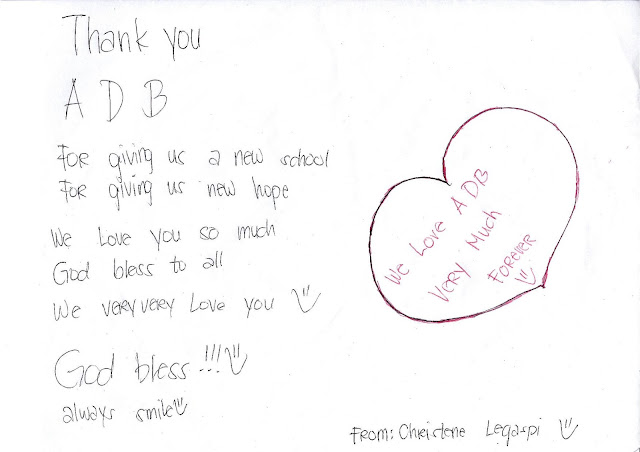 Thank you
A D B
For giving us a new school
For giving us new hope
We Love you so much
God bless to all
We very very Love you
God bless !!!
always smile
We Love ADB
Very Much
Forever
From: Christene Legaspi